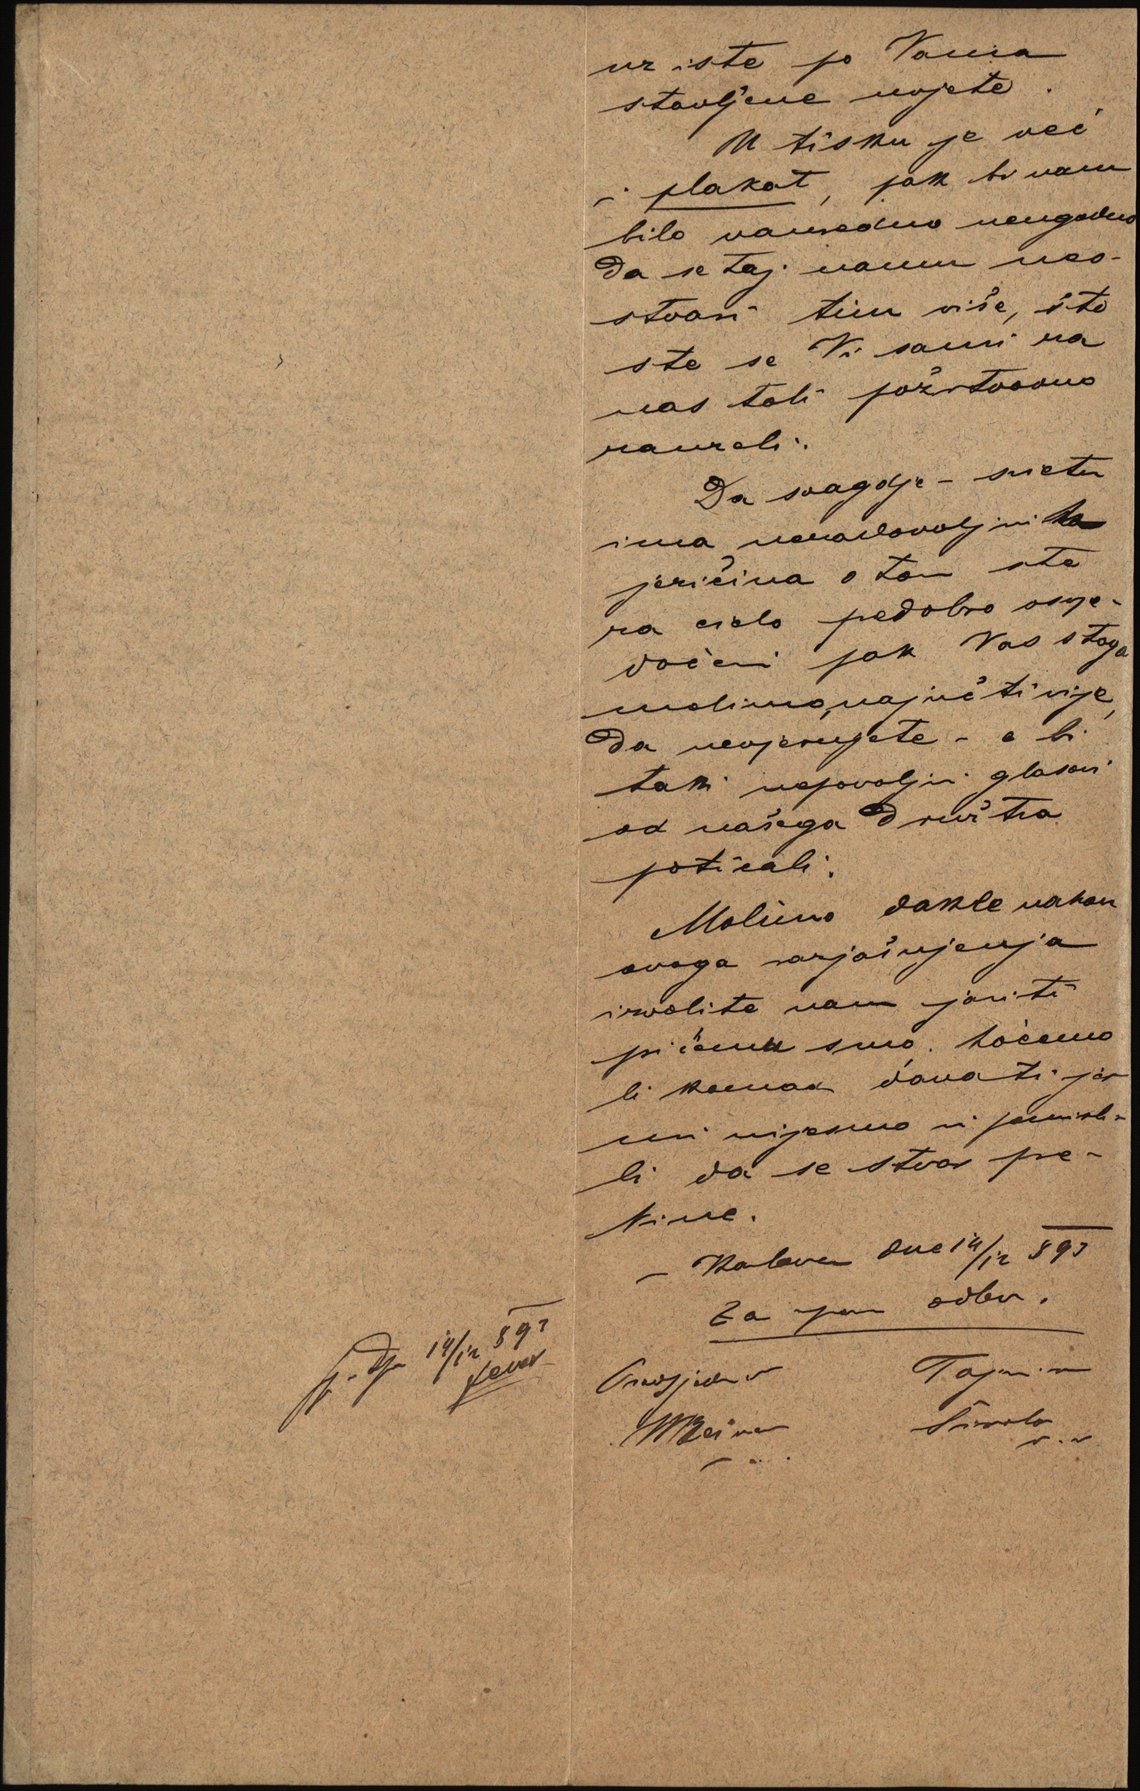 uz iste po Vama
stavljene uvjete.
U tisku je već
i plakat, pak bi nam
bilo vanredno neugodno
da se taj naum neo-
stvari tim više, što
ste se Vi sami za
nas toli požrtvovno
zauzeli.
Da svagdje u svietu
ima nezadovoljnika
jezičina o tom ste
za cielo predobro osvje-
dočeni pak Vas stoga
molimo najučtivije,
da nevjerujete - e bi
taki nepovoljni glasovi
od našega družtva
poticali.
Molimo dakle nakon
ovoga razjašnjenja
izvolite nam javiti
pri čemu smo. hoćemo
li komad davati jer
mi nijesmo ni pomisli-
li da se stvar pre-
kine.
Karlovac dne 14/12 893
Za upr. odbor.
Predsjednik Tajnik
14/12 893